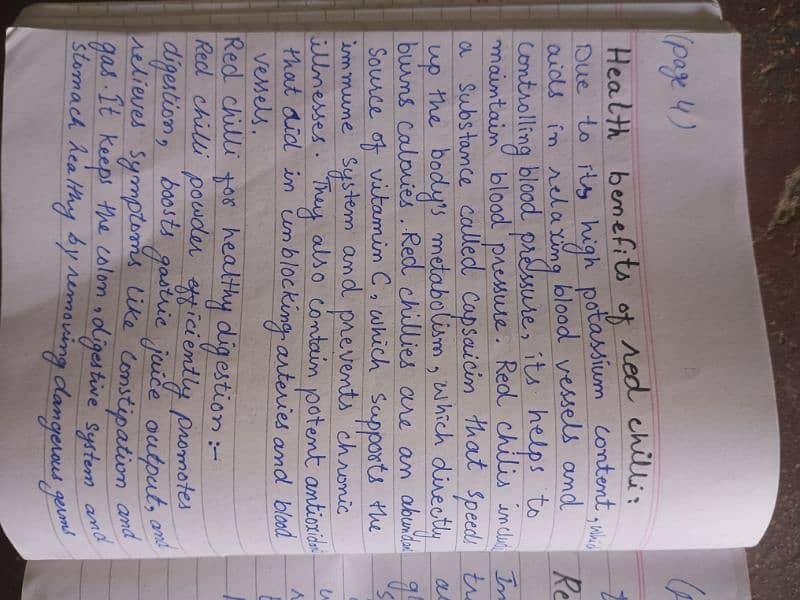 (page 4)
Health benefits of red chilli:
Due to its high potassium content, whic
aids in relaxing blood vessels and
controlling blood pressure, its helps to
maintain blood pressure. Red chilis includ
a substance called capsaicin that speed
up the body's metabolism, which directly
burns calories. Red chillies are an abundan
source of vitamin C, which supports the
immune system and prevents chronic
illnesses. They also contain potent antioxida
that aid in unblocking arteries and blood
vessels.
Red chilli for healthy digestion:-
Red chilli powder efficiently promotes
digestion, boosts gastric juice output, and
relieves symptoms like constipation and
gas. It keeps the colon, digestive system and
stomach healthy by removing dangerous germs
(p
Re
Im
tr